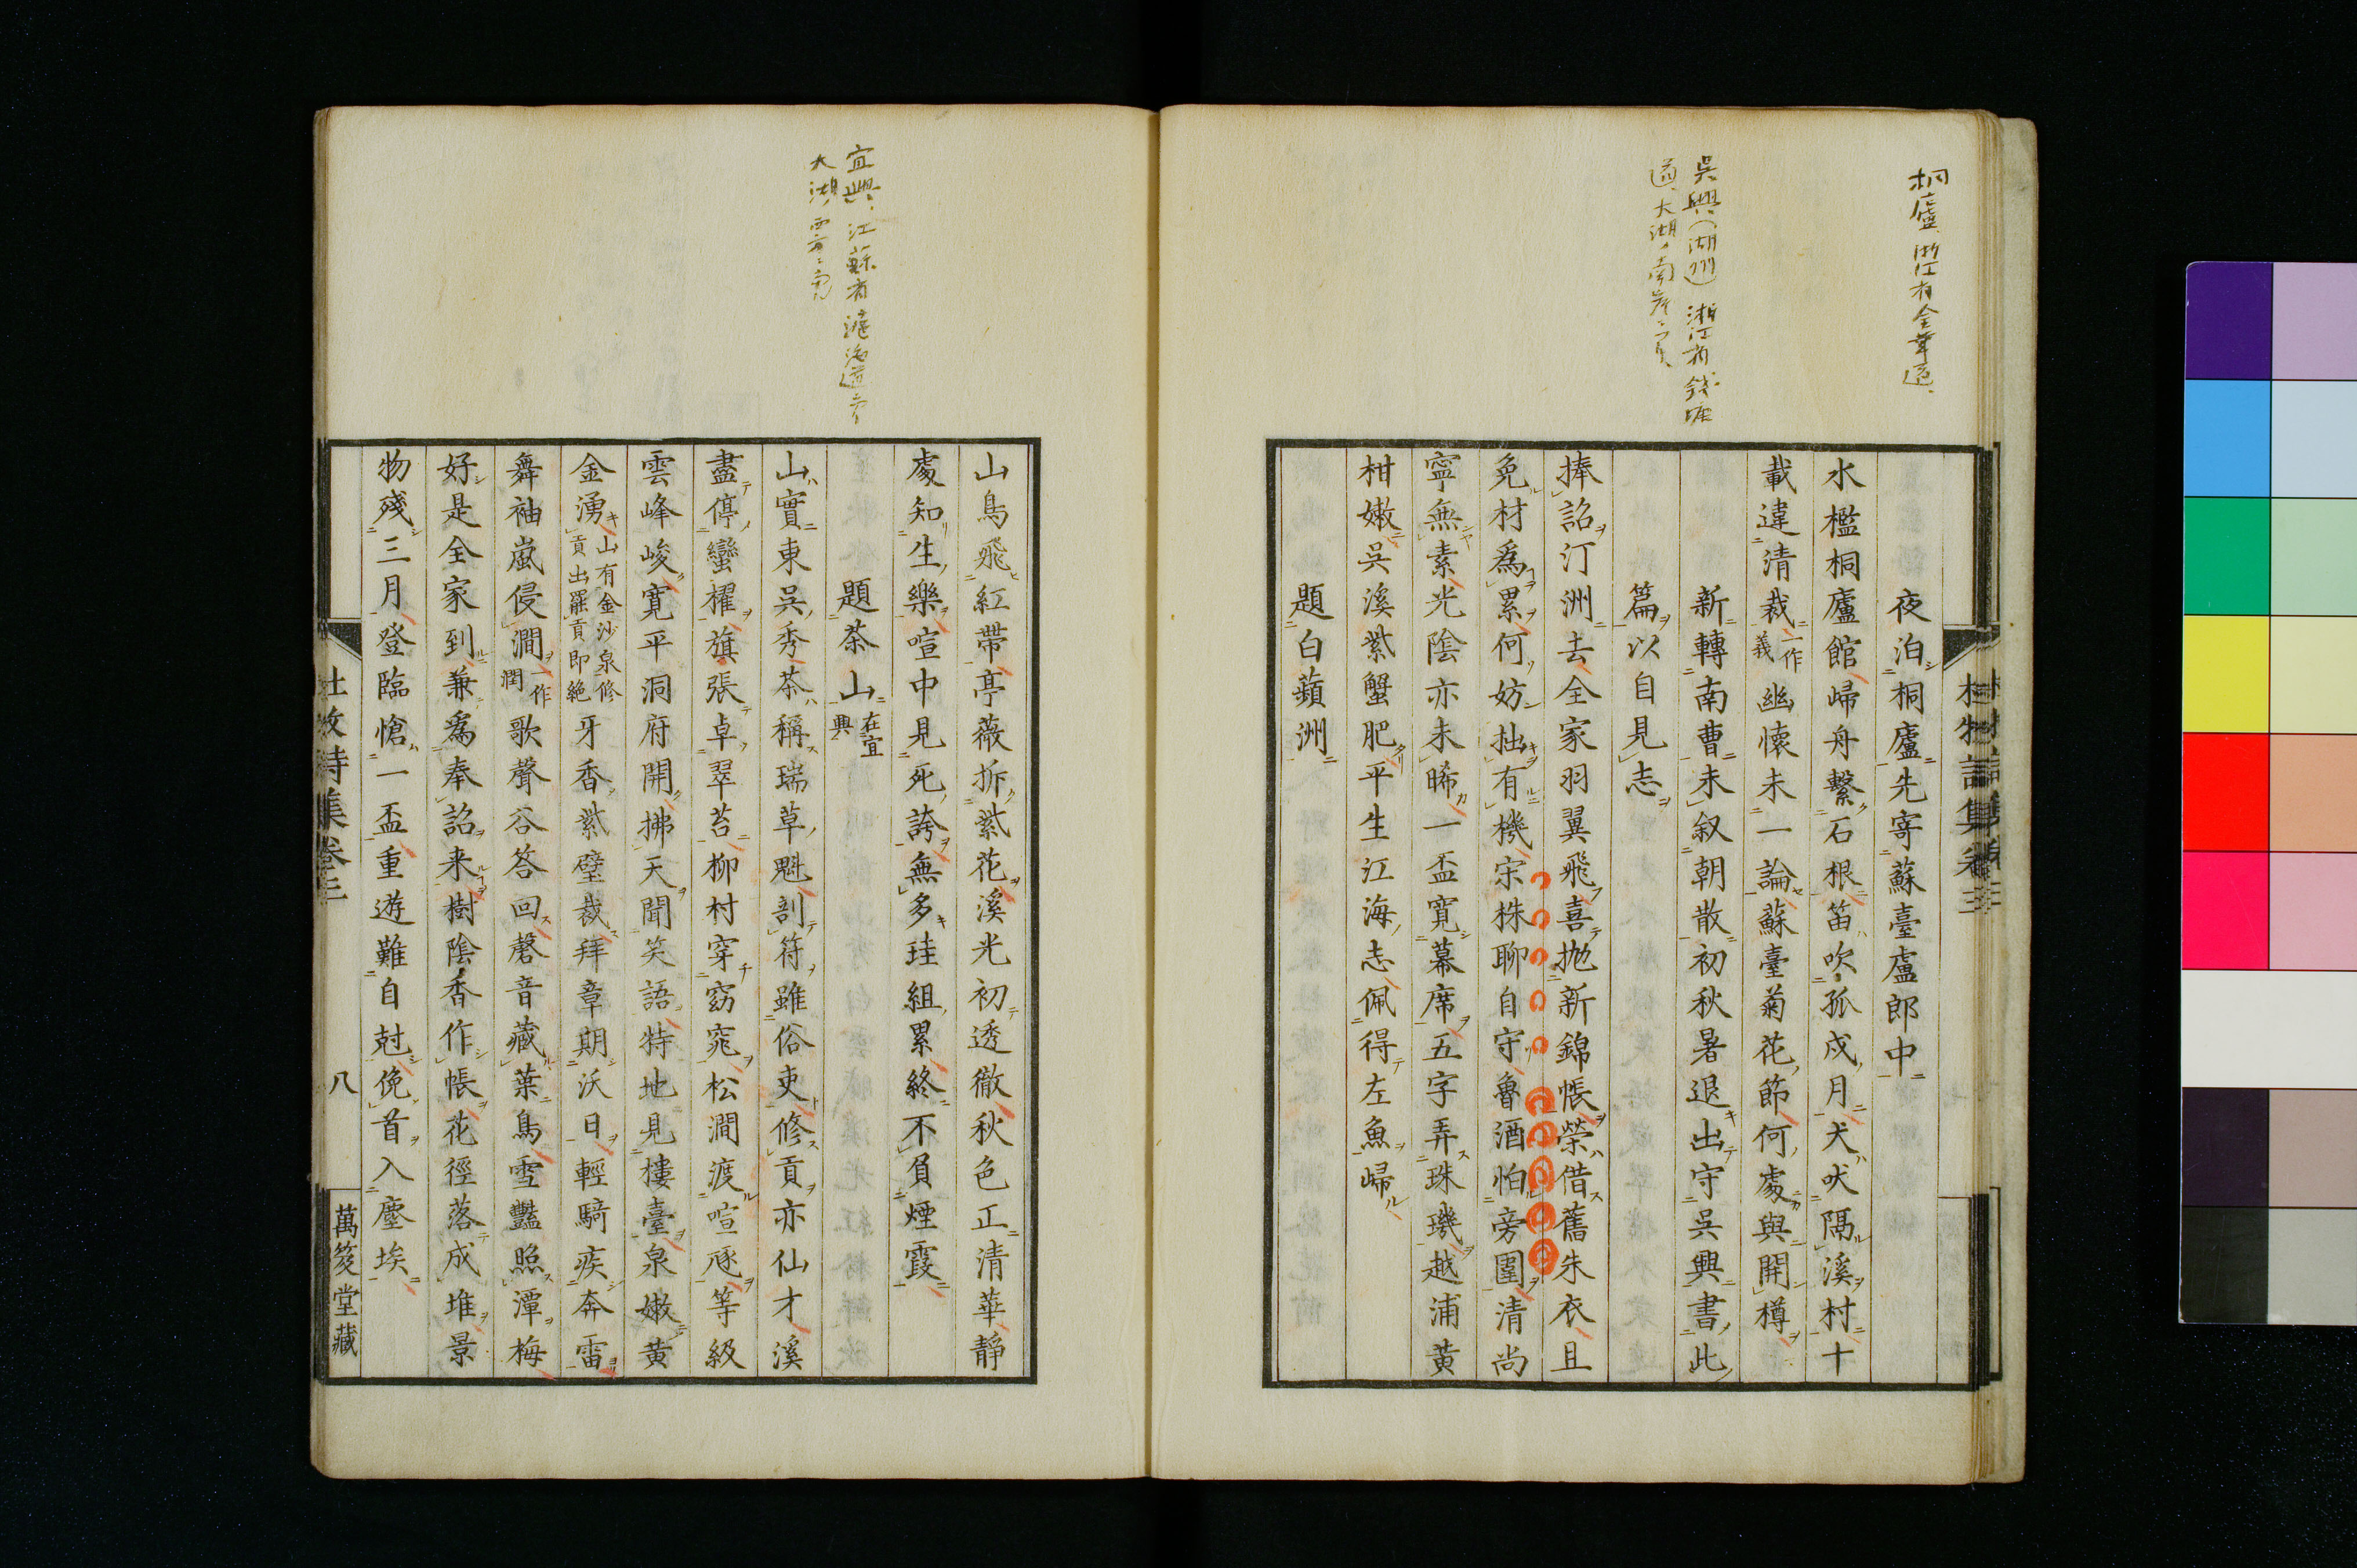 桐廬、浙江省金華道、
吳興(湖州)浙江省錢塘
道、大湖ノ南岸ニアリ
夜泊桐廬先寄蘇臺盧郎中
水檻桐廬館歸舟繫石根笛吹孤戍月犬吠隔溪村十
載違清裁一作義幽懷未一論蘇臺菊花節何處與開樽
新轉南曹未叙朝散初秋暑退出守吳興書此
篇以自見志
捧詔汀洲去全家羽翼飛喜拋新錦帳榮借舊朱衣且
免材爲累何妨拙有機宋株聊自守魯酒怕旁圍清尚
寧無素光陰亦未晞一盃寬幕席五字弄珠璣越浦黃
柑嫩吳溪紫蟹肥平生江海志佩得左魚歸
題白蘋洲
杜牧詩集卷三
宜興、江蘇省滬海道ニアリ
大湖ノ西方ニ
山鳥飛紅帶亭薇拆紫花溪光初透徹秋色正清華靜
處知生樂喧中見死誇無多珪組累終不負煙霞
題茶山在宜興
山實東吳秀茶稱瑞草魁剖符雖俗吏修貢亦仙才溪
盡停蠻櫂旗張卓翠苔柳村穿窈窕松澗渡喧豗等級
雲峰峻寬平洞府開拂天聞笑語特地見樓臺泉嫩黃
金湧山有金沙泉修貢出罷貢即絕牙香紫璧裁拜章期沃日輕騎疾奔雷
舞袖嵐侵澗一作潤歌聲谷答回磬音藏葉鳥雪豔照潭梅
好是全家到兼爲奉詔来樹陰香作帳花徑落成堆景
物殘三月登臨愴一盃重遊難自尅俛首入塵埃
杜牧詩集卷三
八
萬笈堂藏